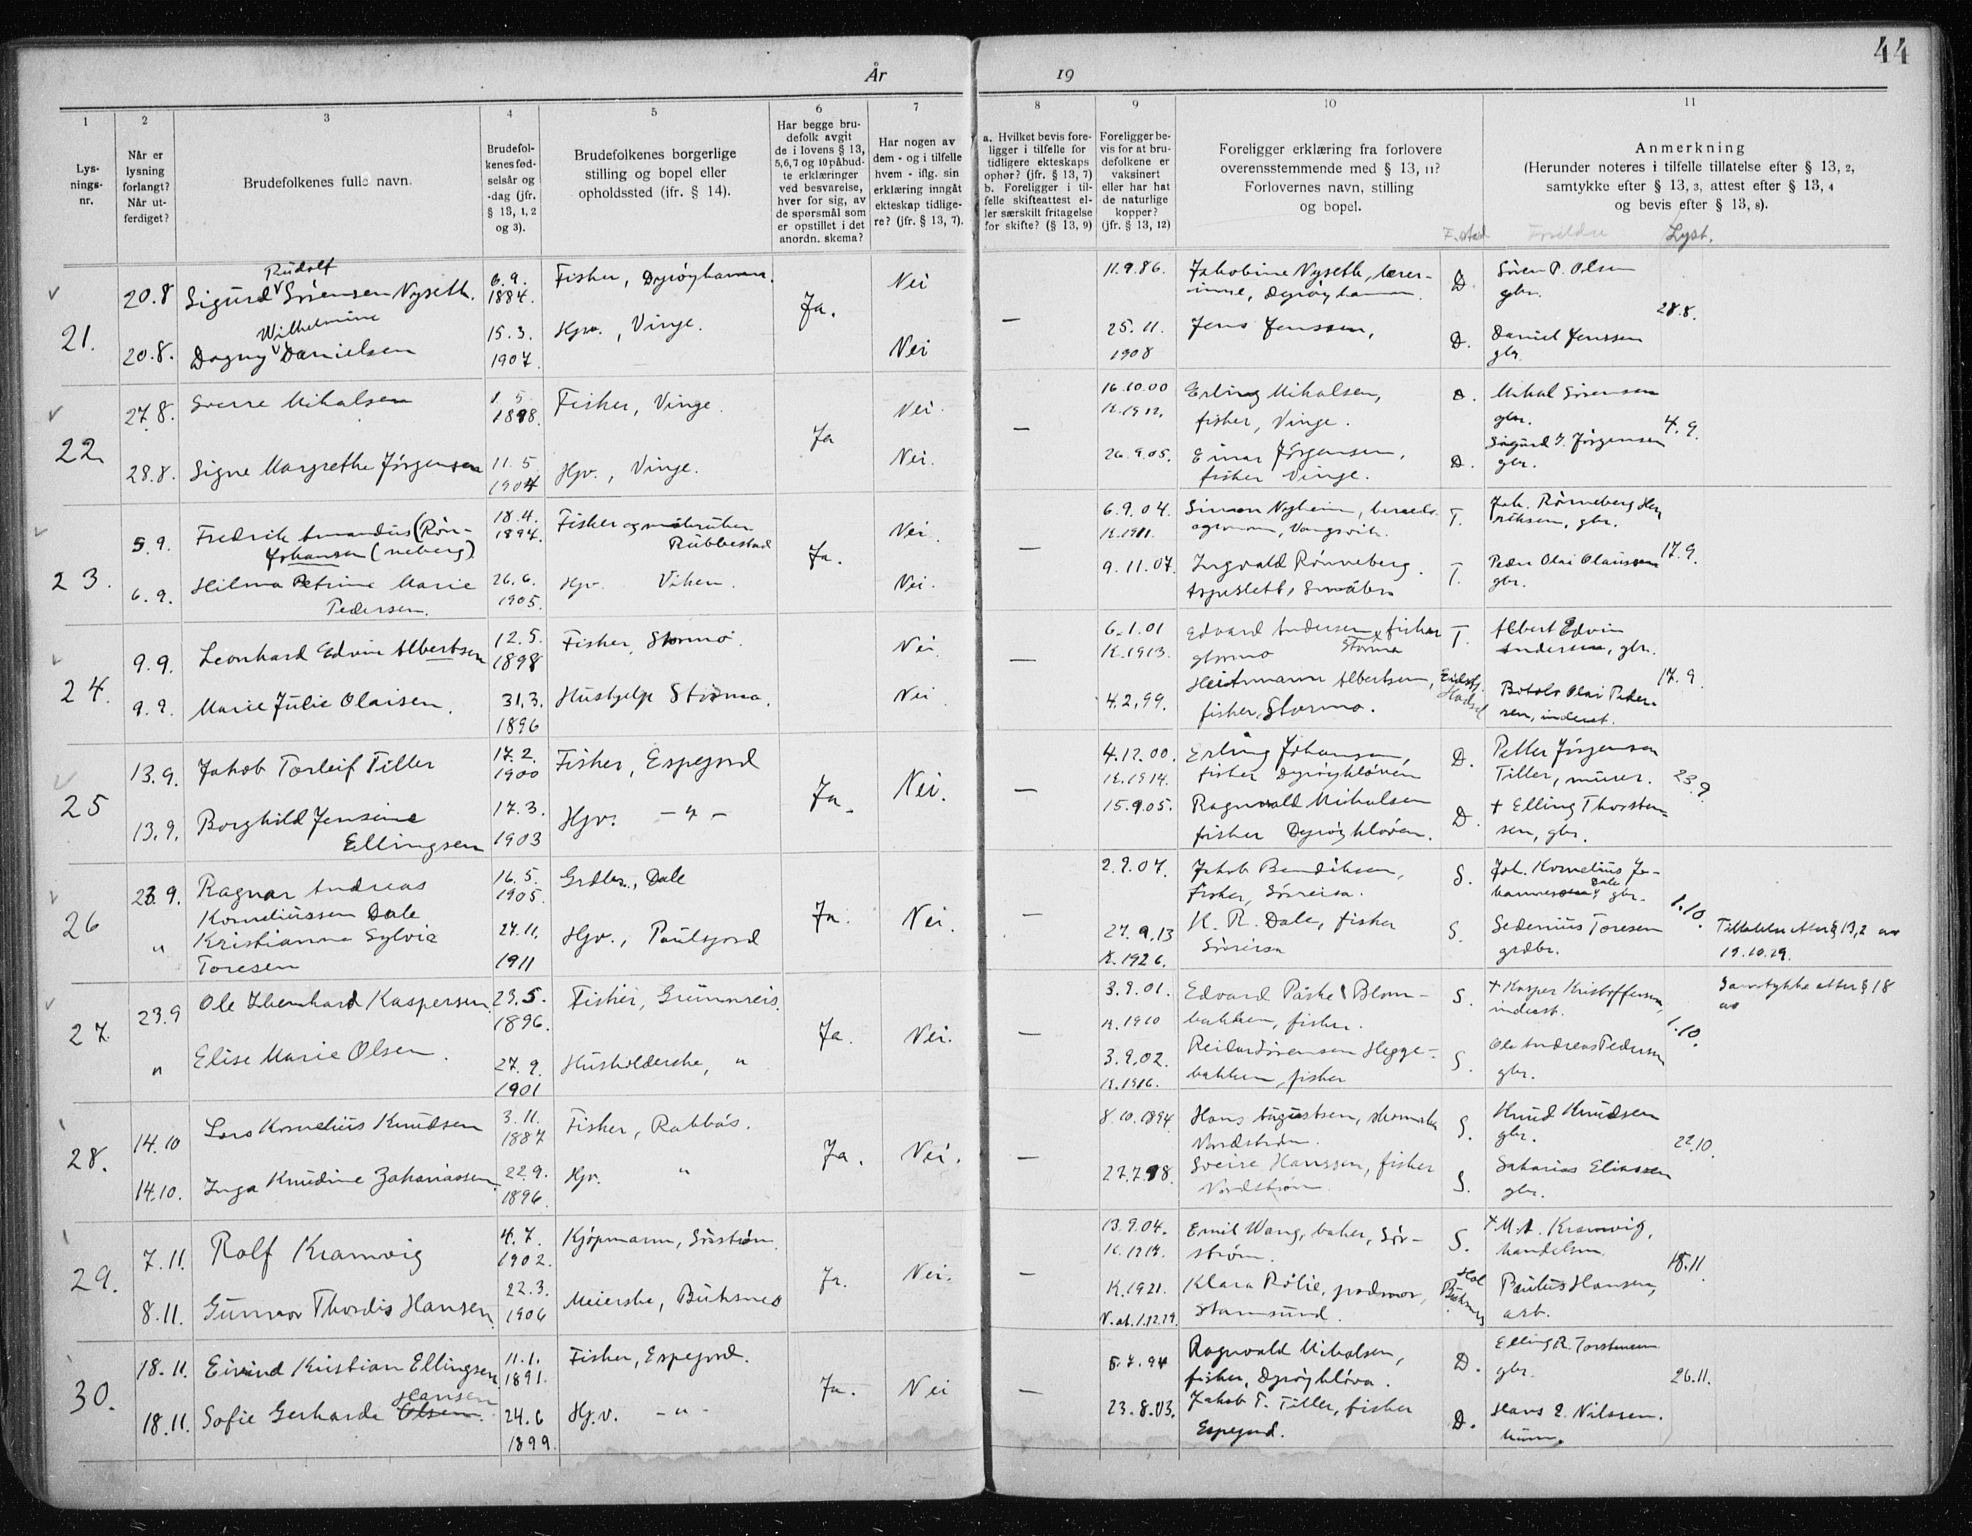 44
År
19
1
2
3
4
5
6
7
8
9
10
11
Lys-
nings-
nr.
Når er
lysning
forlangt?
Når ut-
ferdiget?
Brudefolkenes fulle navn.
Brudefol-
kenes fød-
selsår og
-dag (jfr.
§ 13, 1, 2
og 3).
Brudefolkenes borgerlige
stilling og bopel eller
opholdssted (ifr. § 14).
Har begge bru-
defolk avgit
de i lovens § 13,
5,6,7 og 10 påbud-
te erklæringer
ved besvarelse,
hver for sig, av
de spørsmål som
er opstillet i det
anordn. skema?
Har nogen av
dem - og i tilfelle
hvem - iflg. sin
erklæring inngått
ekteskap tidlige-
re? (jfr. § 13, 7).
a. Hvilket bevis fore-
ligger i tilfelle for
tidligere ekteskaps
ophør? (jfr. § 13, 7)
b. Foreligger i til-
felle skifteattest el-
ler særskilt fritagelse
for skifte? (§ 13, 9)
Foreligger be-
vis for at bru-
defolkene er
vaksinert
eller har hat
de naturlige
kopper?
(jfr. § 13, 12)
Foreligger erklæring fra forlovere
overensstemmende med § 13, 11?
Forlovernes navn, stilling
og bopel.
Anmerkning
(Herunder noteres i tilfelle tillatelse efter § 13, 2,
samtykke efter § 13, 3, attest efter § 13, 4
og bevis efter § 13, 8).
F.sted Foreldre Lyst.
21.
20.8
Rudolf
Sigurd Sørensen Nyseth.
6.9.
1884.
Fisher, Dyrøyhamn.
Ja.
Nei
—
11.9.86.
Jakobine Nyseth, lærer-
inne, Dyrøyhamn.
D.
Søren P. Olsen
gbr.
28.8.
20.8.
Wilhelmine
Dagny Danielsen
15.3.
1907.
Hjv., Vinge.
Nei
25.11.
1908
Jens Jenssen,
D.
Daniel Jenssen
gbr.
22.
27.8.
Sverre Mikalsen
1.5.
1898.
Fisher, Vinge.
Ja
Nei.
—
16.10.00
R.1912.
Erling Mikalsen,
fisher, Vinge.
D.
Mikal Sørensen
gbr.
4.9.
28.8.
Signe Margrethe Jørgensen
11.5.
1904
Hjv., Vinge.
Nei.
26.9.05.
Einar Jørgensen,
fisher Vinge.
D.
Sigurd J. Jørgensen
gbr.
23.
5.9.
Fredrik Amandus (Røn-
Johansen (neberg)
18.4.
1894.
Fisher og
Rubbestad
Ja.
Nei.
—
6.9.04.
R.1911.
Simon Nygheim,
agronom, Vangsvik.
T.
Joh. Rønneberg Hen
riksen, gbr.
17.9.
6.9.
Hilma Petrine Marie
Pedersen.
26.6.
1905.
Hjv. Viken.
Nei.
9.11.07.
Ingvald Rønneberg.
T.
Peder Olai Olaussen
gbr.
24.
9.9.
Leonhard Edvin Albertsen
12.5.
1898
Fisher, Stormo
Nei.
—
6.1.01
R.1913.
Edvard Andersen, fisher
Stormo
T.
Albert Edvin
Andersen, gbr.
17.9.
9.9.
Marie Julie Olaisen.
31.3.
1896
Hushjelp Stormo.
Nei.
4.2.99.
Albertsen,
fisher, Stormo.
Hadsel
Olai Peder-
sen, inderst.
25
13.9.
Jakob Torleif Tiller
17.2.
1900
Fisher, Espejord
Ja.
Nei.
—
4.12.00.
R.1914.
Erling Johansen,
fisher Dyrøykløven
D.
Petter Jørgensen
Tiller, murer.
23.9.
13.9.
Borghild Jensine
Ellingsen
17.3.
1903
Hjv. — " —
15.9.05.
Ragnvald Mikalsen
fisher Dyrøykløven.
D.
+ Elling Thorsten-
sen, gbr.
26
23.9.
Ragnar Andreas
Korneliussen Dale
16.5.
1905.
Grdbr., Dale
Ja.
Nei.
—
2.9.07.
Jakob Bendiksen,
Fisher, Sørreisa.
S.
Joh. Kornelius Jo-
hannessen Dale, gbr.
1.10.
"
Kristianna Sylvia
Toresen
27.11.
1911
Hjv., Paulsjord
27.9.13
R.1926.
K. R. Dale, fisher
Sørreisa
S.
Sedenius Toresen
grdbr.
Tillatelse etter § 13,2 av
19.10.29.
27.
23.9
Ole Ebenhard Kaspersen
23.5.
1896.
Fisher, Grunnreis.
Ja.
Nei.
—
3.9.01.
R.1910
Edvard Påske Blom-
bakken, fisher.
S.
+ Kasper Kristoffersen,
inderst.
1.10.
Samtykke etter § 18
av
"
Elise Marie Olsen.
27.9.
1901
Husholderske, "
3.9.02.
R.1916.
Reidar Sørensen Hegge-
bakken, fisher
S.
Ole Andreas Pedersen
gbr.
28.
14.10
Lars Kornelius Knudsen
3.11.
1887
Fisher, Rabbås.
Ja.
Nei.
—
8.10.1894
Hans Augustsen,
Nordstrøm.
S.
Knud Knudsen
gbr.
22.10.
14.10.
Inga Knudine Zahariassen
22.9.
1896.
Hjv. "
27.7.98.
Sverre Hanssen, fisher
Nordstrøm.
S.
Sakarias Eliassen
gbr.
29.
7.11.
Rolf Kramvig
4.7.
1902.
Kjøpmann, Sørstrøm.
Ja.
Nei.
—
13.9.04.
R.1917.
Emil Wang, baker, Sør-
strøm.
S.
+ M.A. Kramvig,
handelsm.
18.11.
8.11.
Gunvor Thordis Hansen
22.3.
1906
Meierske, Buksnes
R.1921.
V.at.1.12.29.
Klara Rølie, jordmor,
Stamsund.
Hol
Buksnes
Paulus Hansen,
arb.
30.
18.11.
Eivind Kristian Ellingsen
11.1.
1891.
Fisher, Espejord.
Ja.
Nei
—
5.7.94
Ragnvald Mikalsen,
fisher, Dyrøykløva.
D.
Elling R. Torstensen
gbr.
26.11.
18.11.
Hansen
Sofie Gerharda Olsen.
24.6
1899.
Hj.v. — " —
23.8.03.
Jakob T. Tiller, fisher
Espejord.
D.
Hans E. Nilssen.